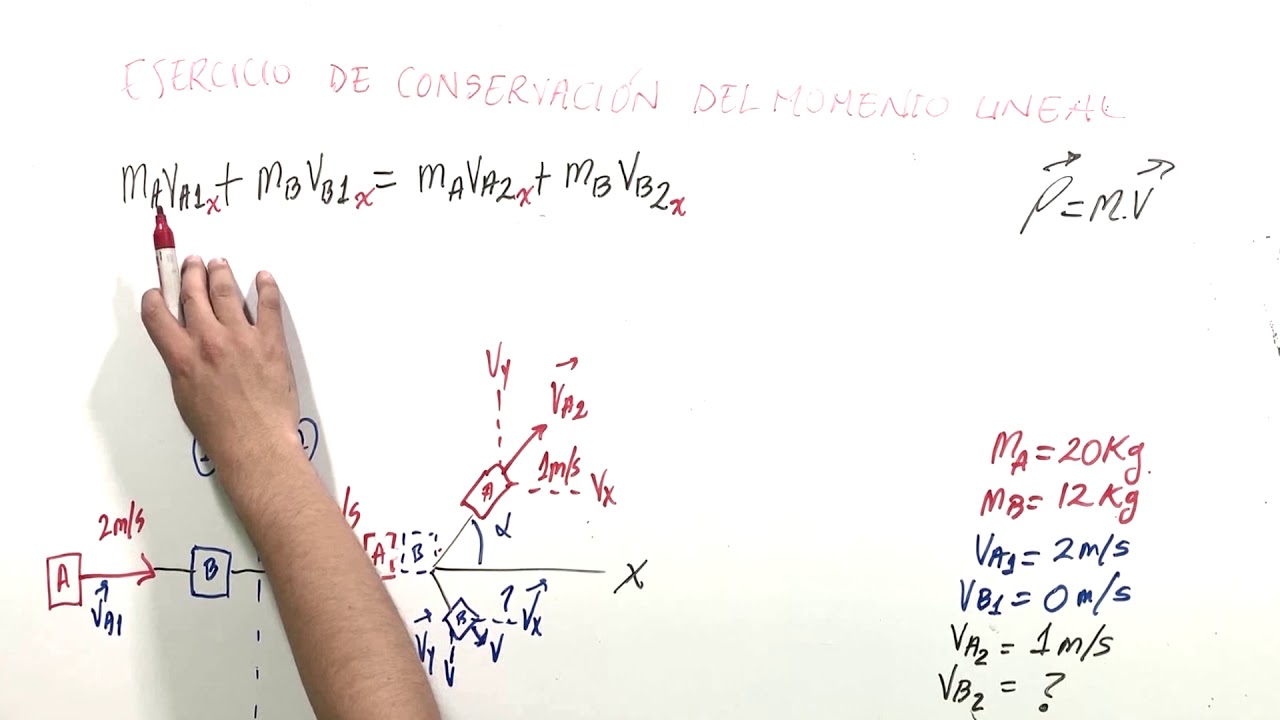 EJERCICIO DE CONSERVACIÓN DEL MOMENTO LINEAL
mAVA1x + mBVB1x = mAVA2x + mBVB2x
P = m.V
Vy
VA2
1m/s
Vx
A
α
2m/s
/s
A
B
A
B
X
VA1
B
?
Vx
Vy
V
MA = 20Kg.
mB = 12Kg
VA1 = 2m/s
VB1 = 0m/s
VA2 = 1m/s
VB2 = ?